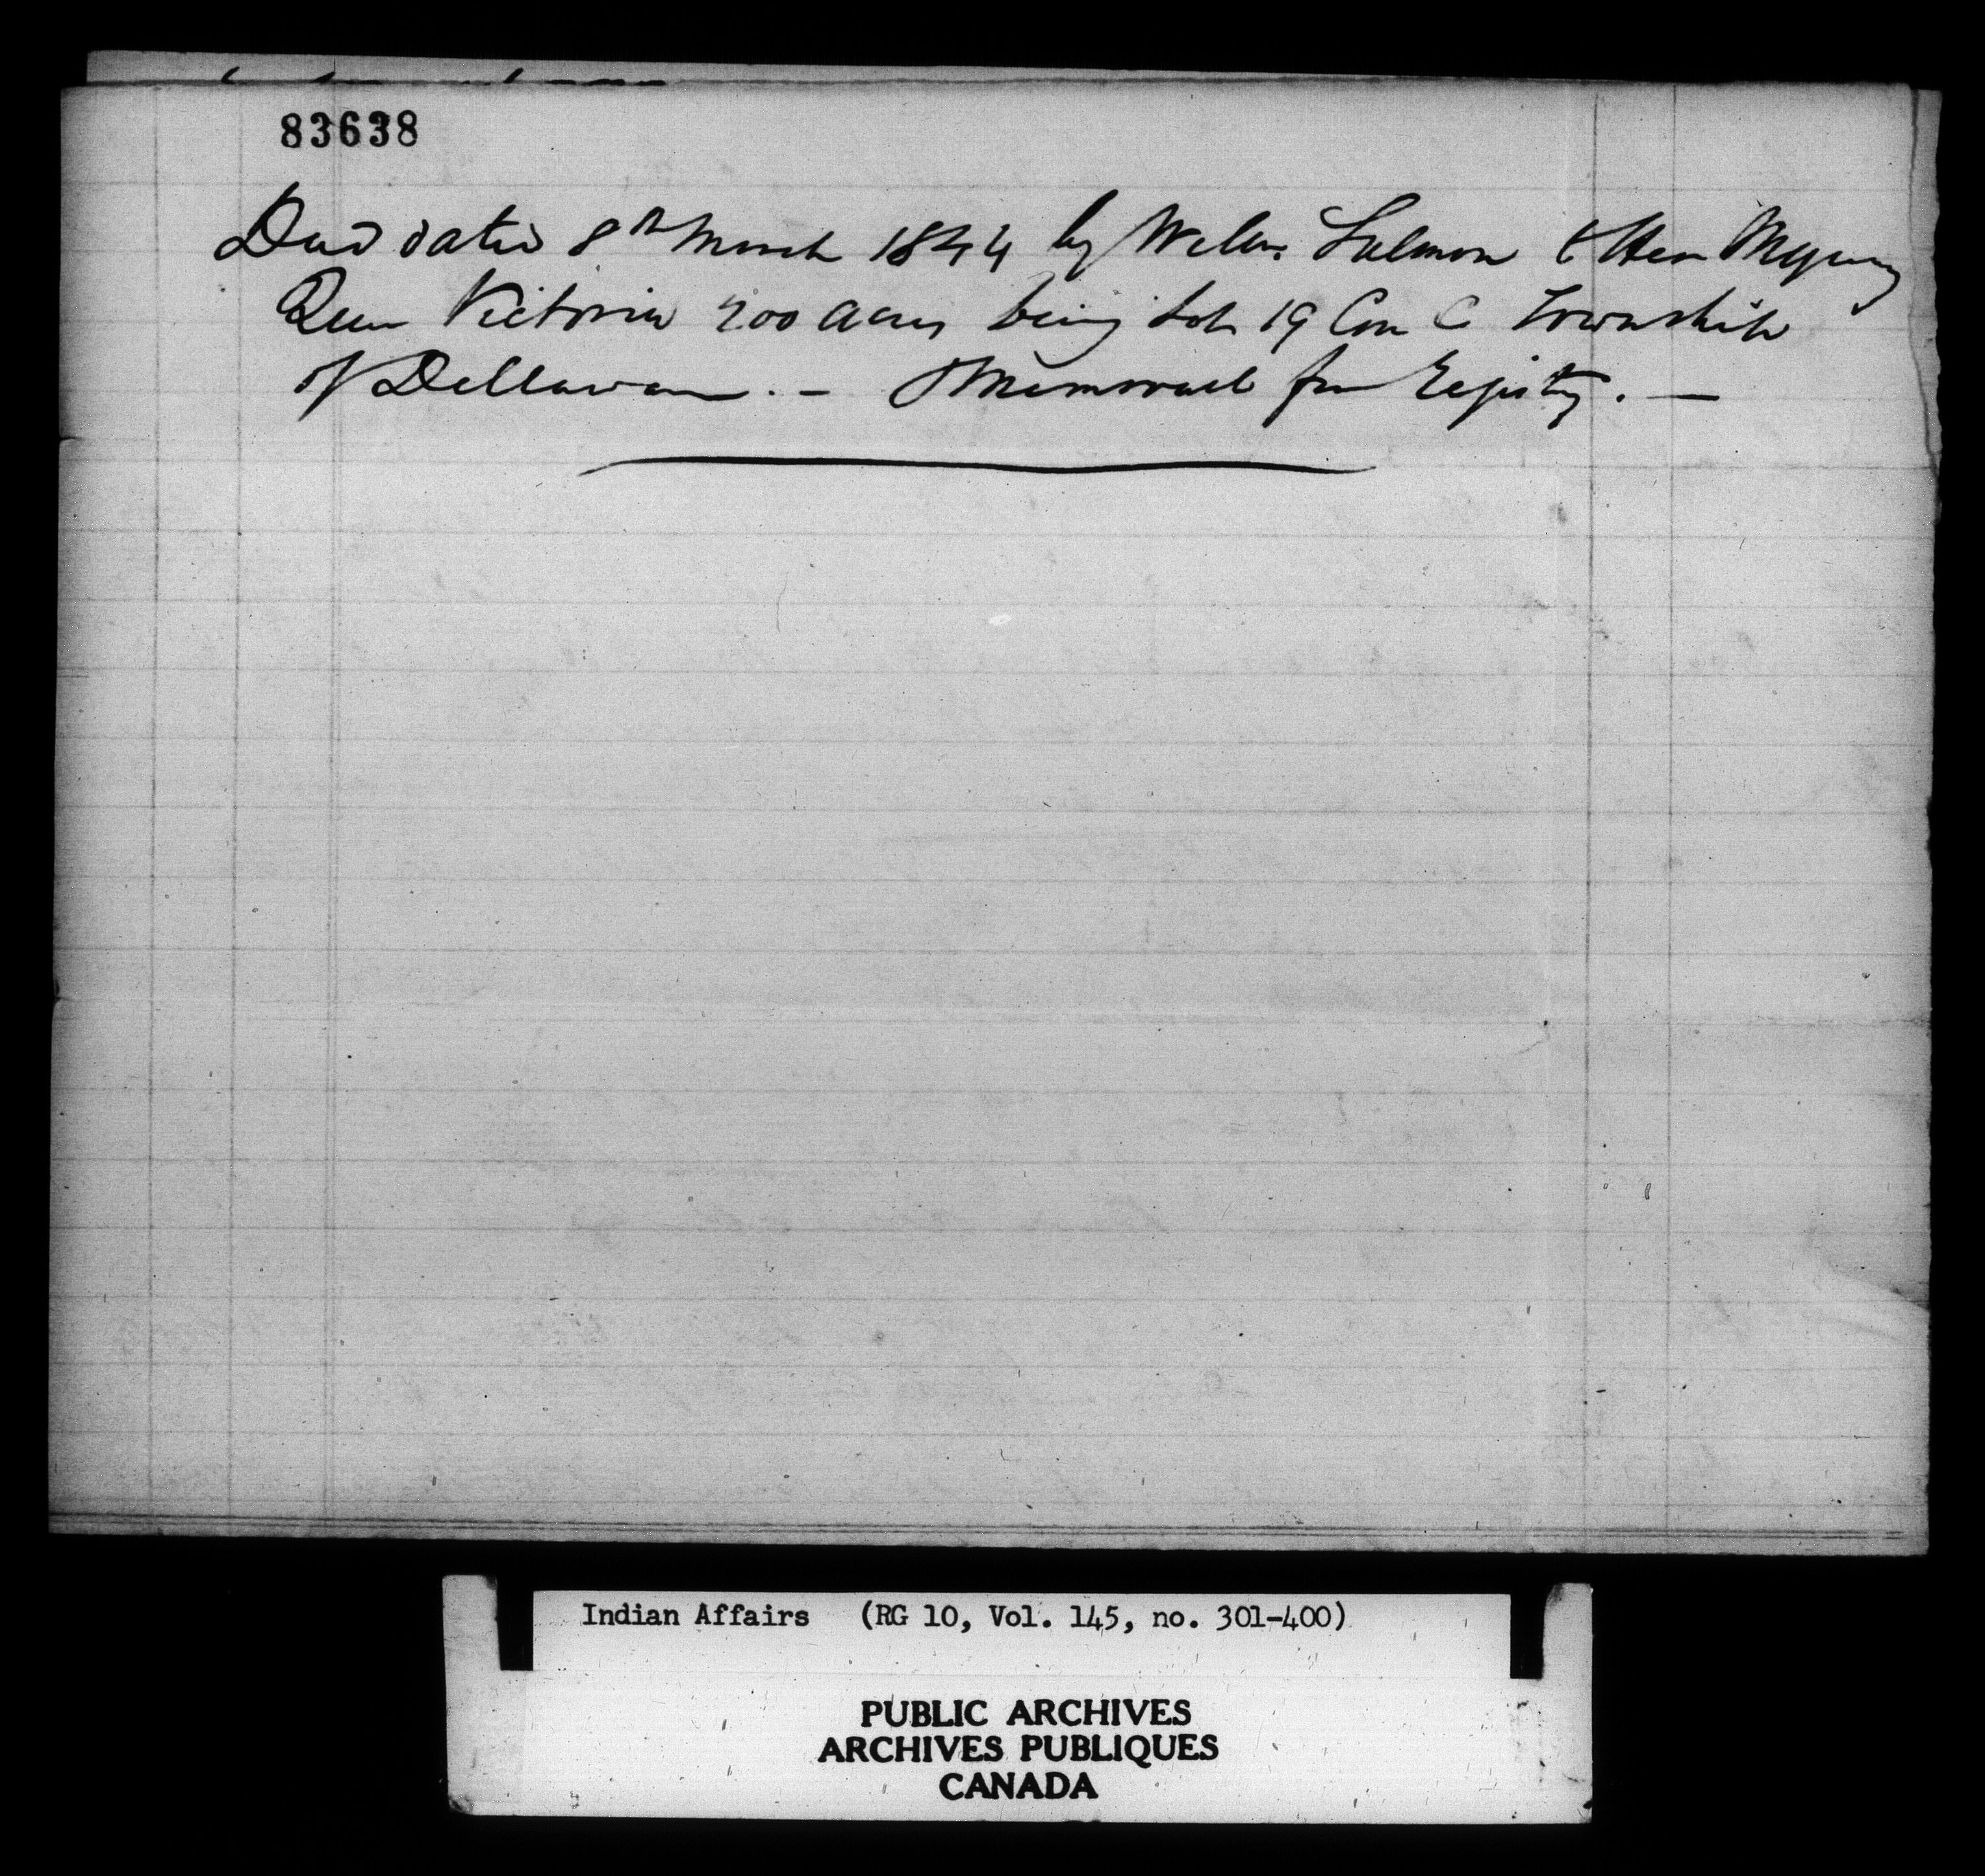 83638
Deed dated 8th March 1844 by Willm Salmon to Her Majesty
Queen Victoria 200 acres being Lot 19 Con C Township
of Dellaware. — Memorial for Registry. —
Indian Affairs (RG 10, Vol. 145, no. 301-400)
PUBLIC ARCHIVES
ARCHIVES PUBLIQUES
CANADA